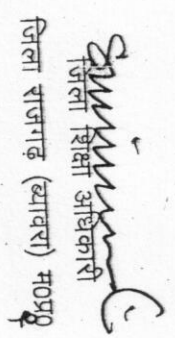 जिला शिक्षा अधिकारी
जिला राजगढ़ (ब्यावरा) म०प्र०